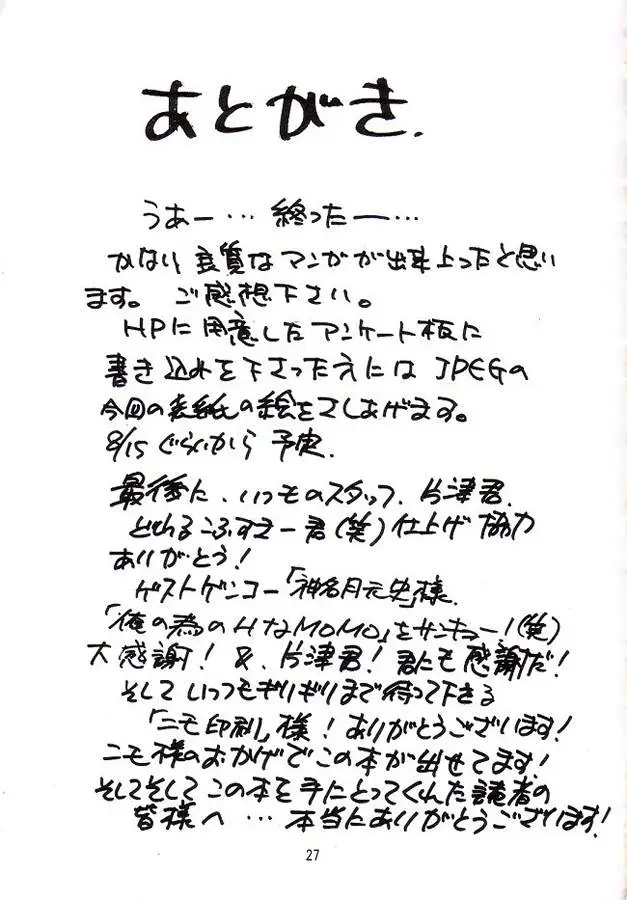 あとがき.
うあー… 終ったー…
かない良質なマンガが出来上ったと思い
ます。ご感想下さい。
HPに用意したアンケート板に
書き込めを下さった方には JPEGの
今回の表紙の絵をさしあげます。
8/15ぐらいから 予定.
最後に、いつものスタッフ、片津君、
君(笑)仕上げ協力
ありがとう!
ゲストゲンコー「神名月元史」様、
「俺の為のHなMOMO」をサンキュー!(笑)
大感謝! &、片津君! 君にも感謝だ!
そして いつもギリギリまで待って下さる
「ニモ印刷」様! ありがとうございます!
ニモ様のおかげでこの本が出せてます!
そしてそして この本を手にとってくれた読者の
皆様へ … 本当にありがとうございます!
27